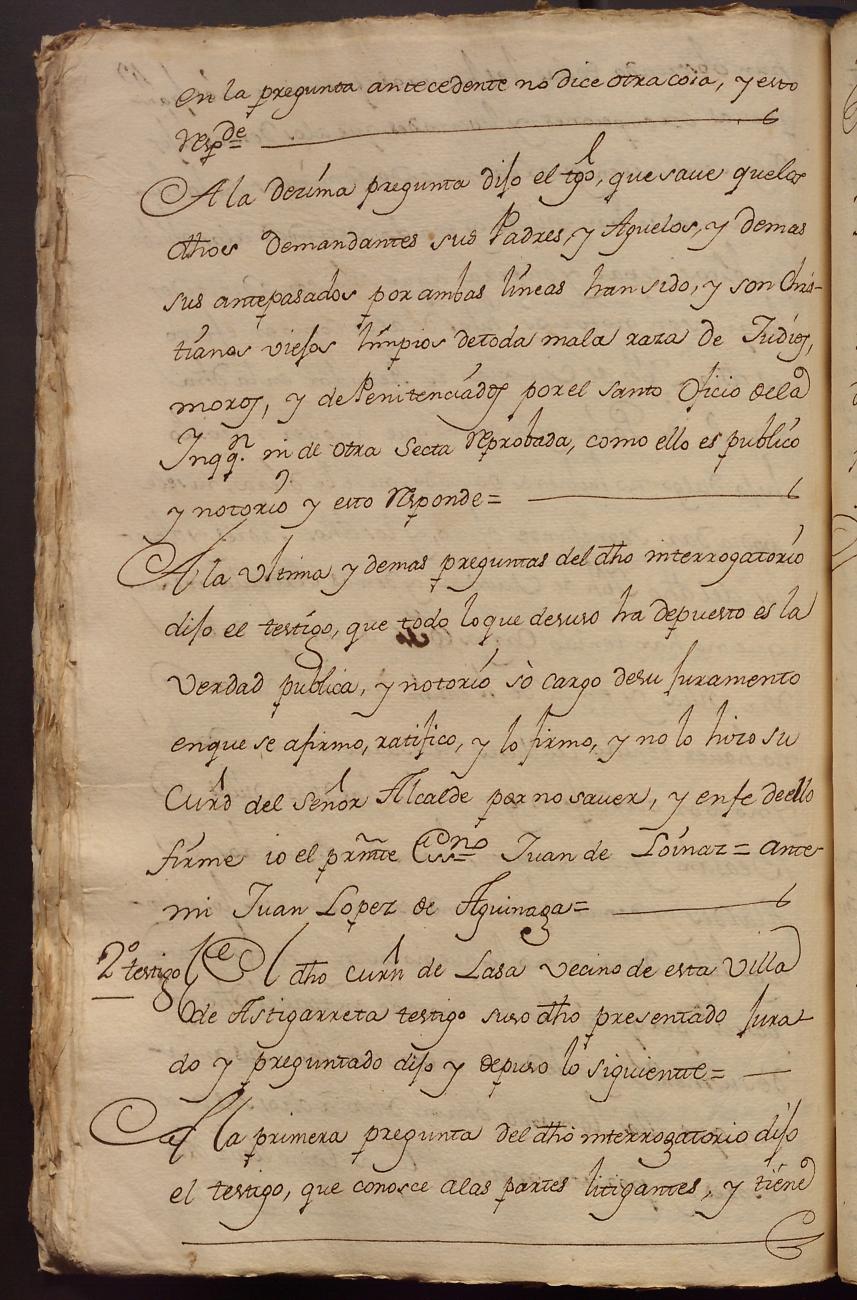 en la pregunta antecedente no dice otra cosa, y esto
Respde
A la dezima pregunta dijo el tgo, que save que los
dhos demandantes sus Padres, y Aguelos, y demas
sus antepasados por ambas lineas han sido, y son Chris-
tianos viejos limpios de toda mala raza de Judios,
moros, y de Penitenciados por el santo Oficio de la
Inqqn. ni de otra Secta Reprobada, como ello es publico
y notorio y esto Responde=
A la Ultima y demas preguntas del dho interrogatorio
dijo el testigo, que todo lo que desuso ha depuesto es la
Verdad publica, y notorio sò cargo de su Juramento
en que se afirmo, ratifico, y lo firmo, y no lo hizo su
del Señor Alcalde por no saver, y en fe de ello
firme io el prmte Essno Juan de Loinaz = ante
mi Juan Lopez de Aguinaga=
2º testigo El dho de Lasa vecino de esta Villa
de Astigarreta testigo suso dho presentado Jura-
do y preguntado dijo y depuso lo siguiente=
A la primera pregunta del dho interrogatorio dijo
el testigo, que conosce a las partes litigantes, y tiene